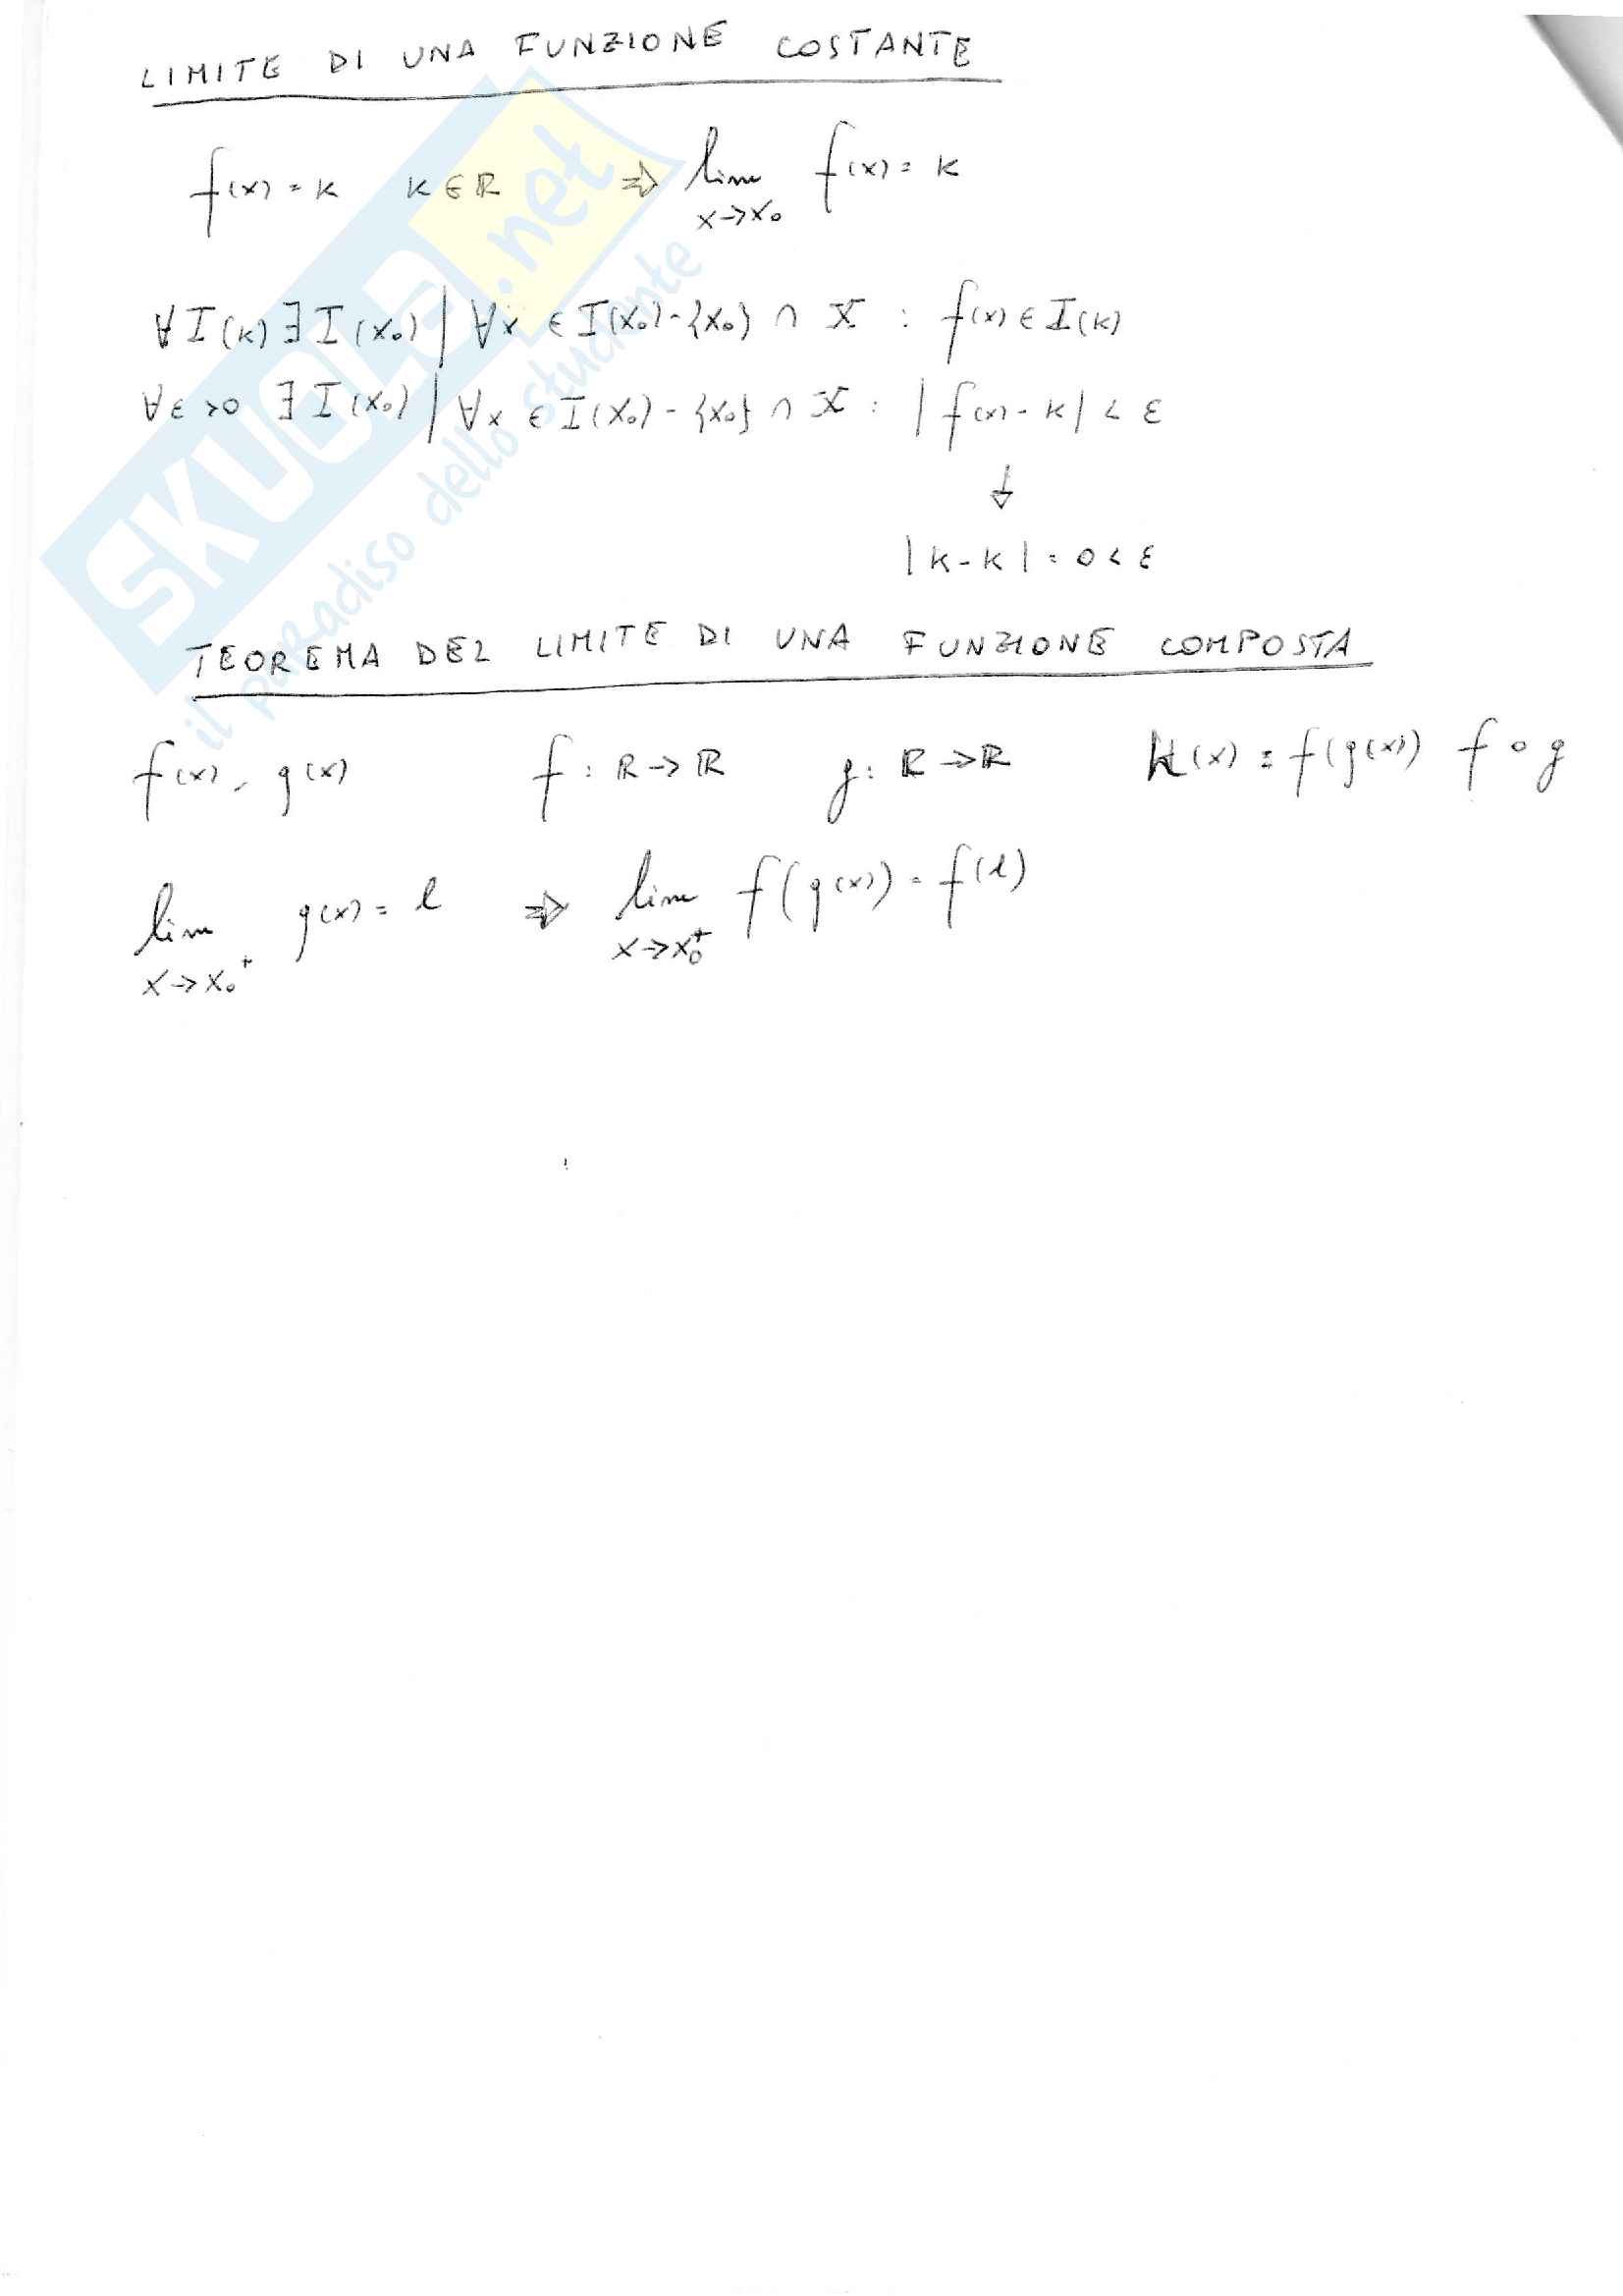 LIMITE DI UNA FUNZIONE COSTANTE
f(x) = k k ∈ ℝ ⇒ lim f(x) = k
x→x₀
∀ I(k) ∃ I(x₀) | ∀x ∈ I(x₀) - {x₀} ∩ X : f(x) ∈ I(k)
∀ε > 0 ∃ I(x₀) | ∀x ∈ I(x₀) - {x₀} ∩ X : | f(x) - k | < ε
↓
| k - k | = 0 < ε
TEOREMA DEL LIMITE DI UNA FUNZIONE COMPOSTA
f(x), g(x) f : ℝ → ℝ g : ℝ → ℝ k(x) = f(g(x)) f ∘ g
lim g(x) = l ⇒ lim f(g(x)) = f(l)
x→x₀⁺ x→x₀⁺
SKUOLa.net
il paradiso dello studente